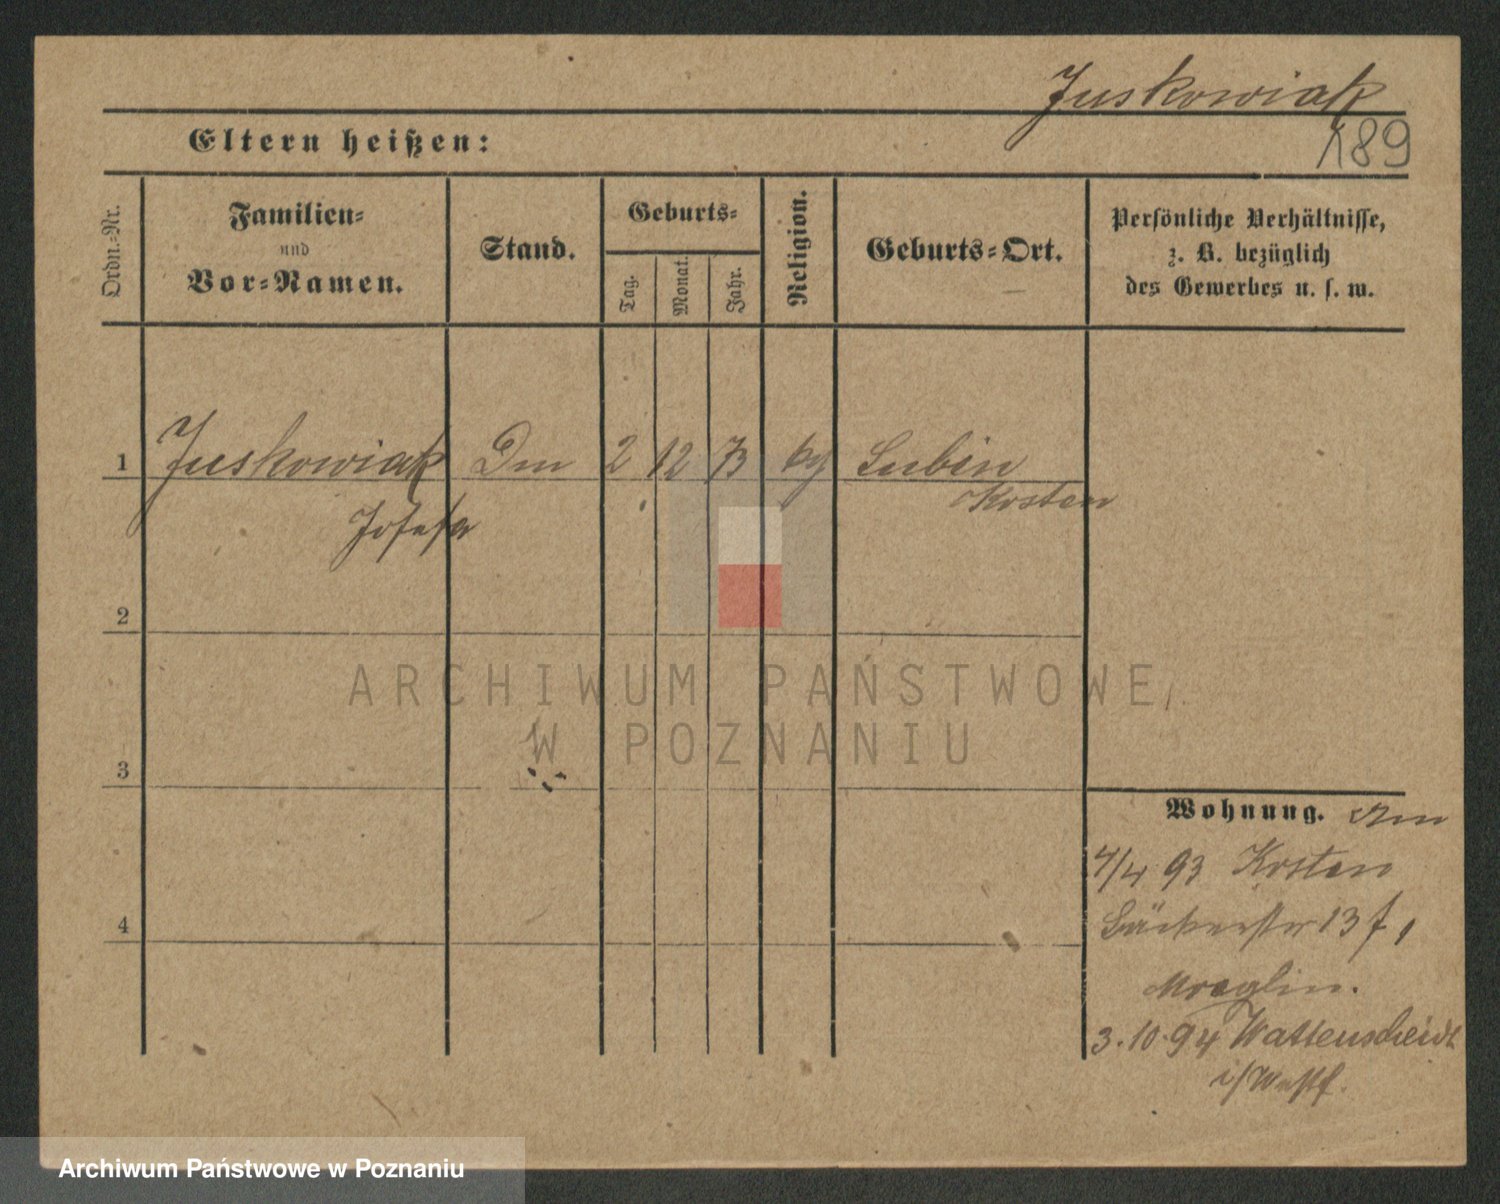 Juskowiak
189
Eltern heißen:
Ordn.-Nr.
Familien-
und
Vor-Namen.
Stand.
Geburts-
Tag.
Monat.
Jahr.
Religion.
Geburts-Ort.
Persönliche Verhältnisse,
z. B. bezüglich
des Gewerbes u. s. w.
1 Juskowiak Dm 2 12 73 kg Lubin
Kosten
Josefa
2
ARCHIWUM PAŃSTWOWE
W POZNANIU
3
Wohnung.
4/4 93 Kosten
Bäckerstr 13 f,
4
3.10.94 Wattenscheidt
i/Westf.
Archiwum Państwowe w Poznaniu